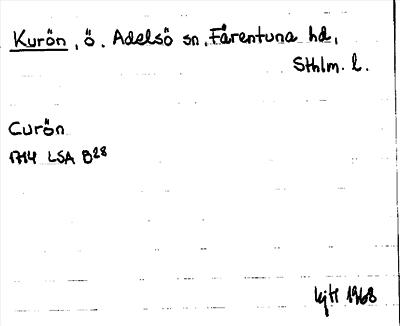 Kurön, ö. Adelsö sn, Färentuna hd,
Sthlm. l.
Curön
1714 LSA B28
1968